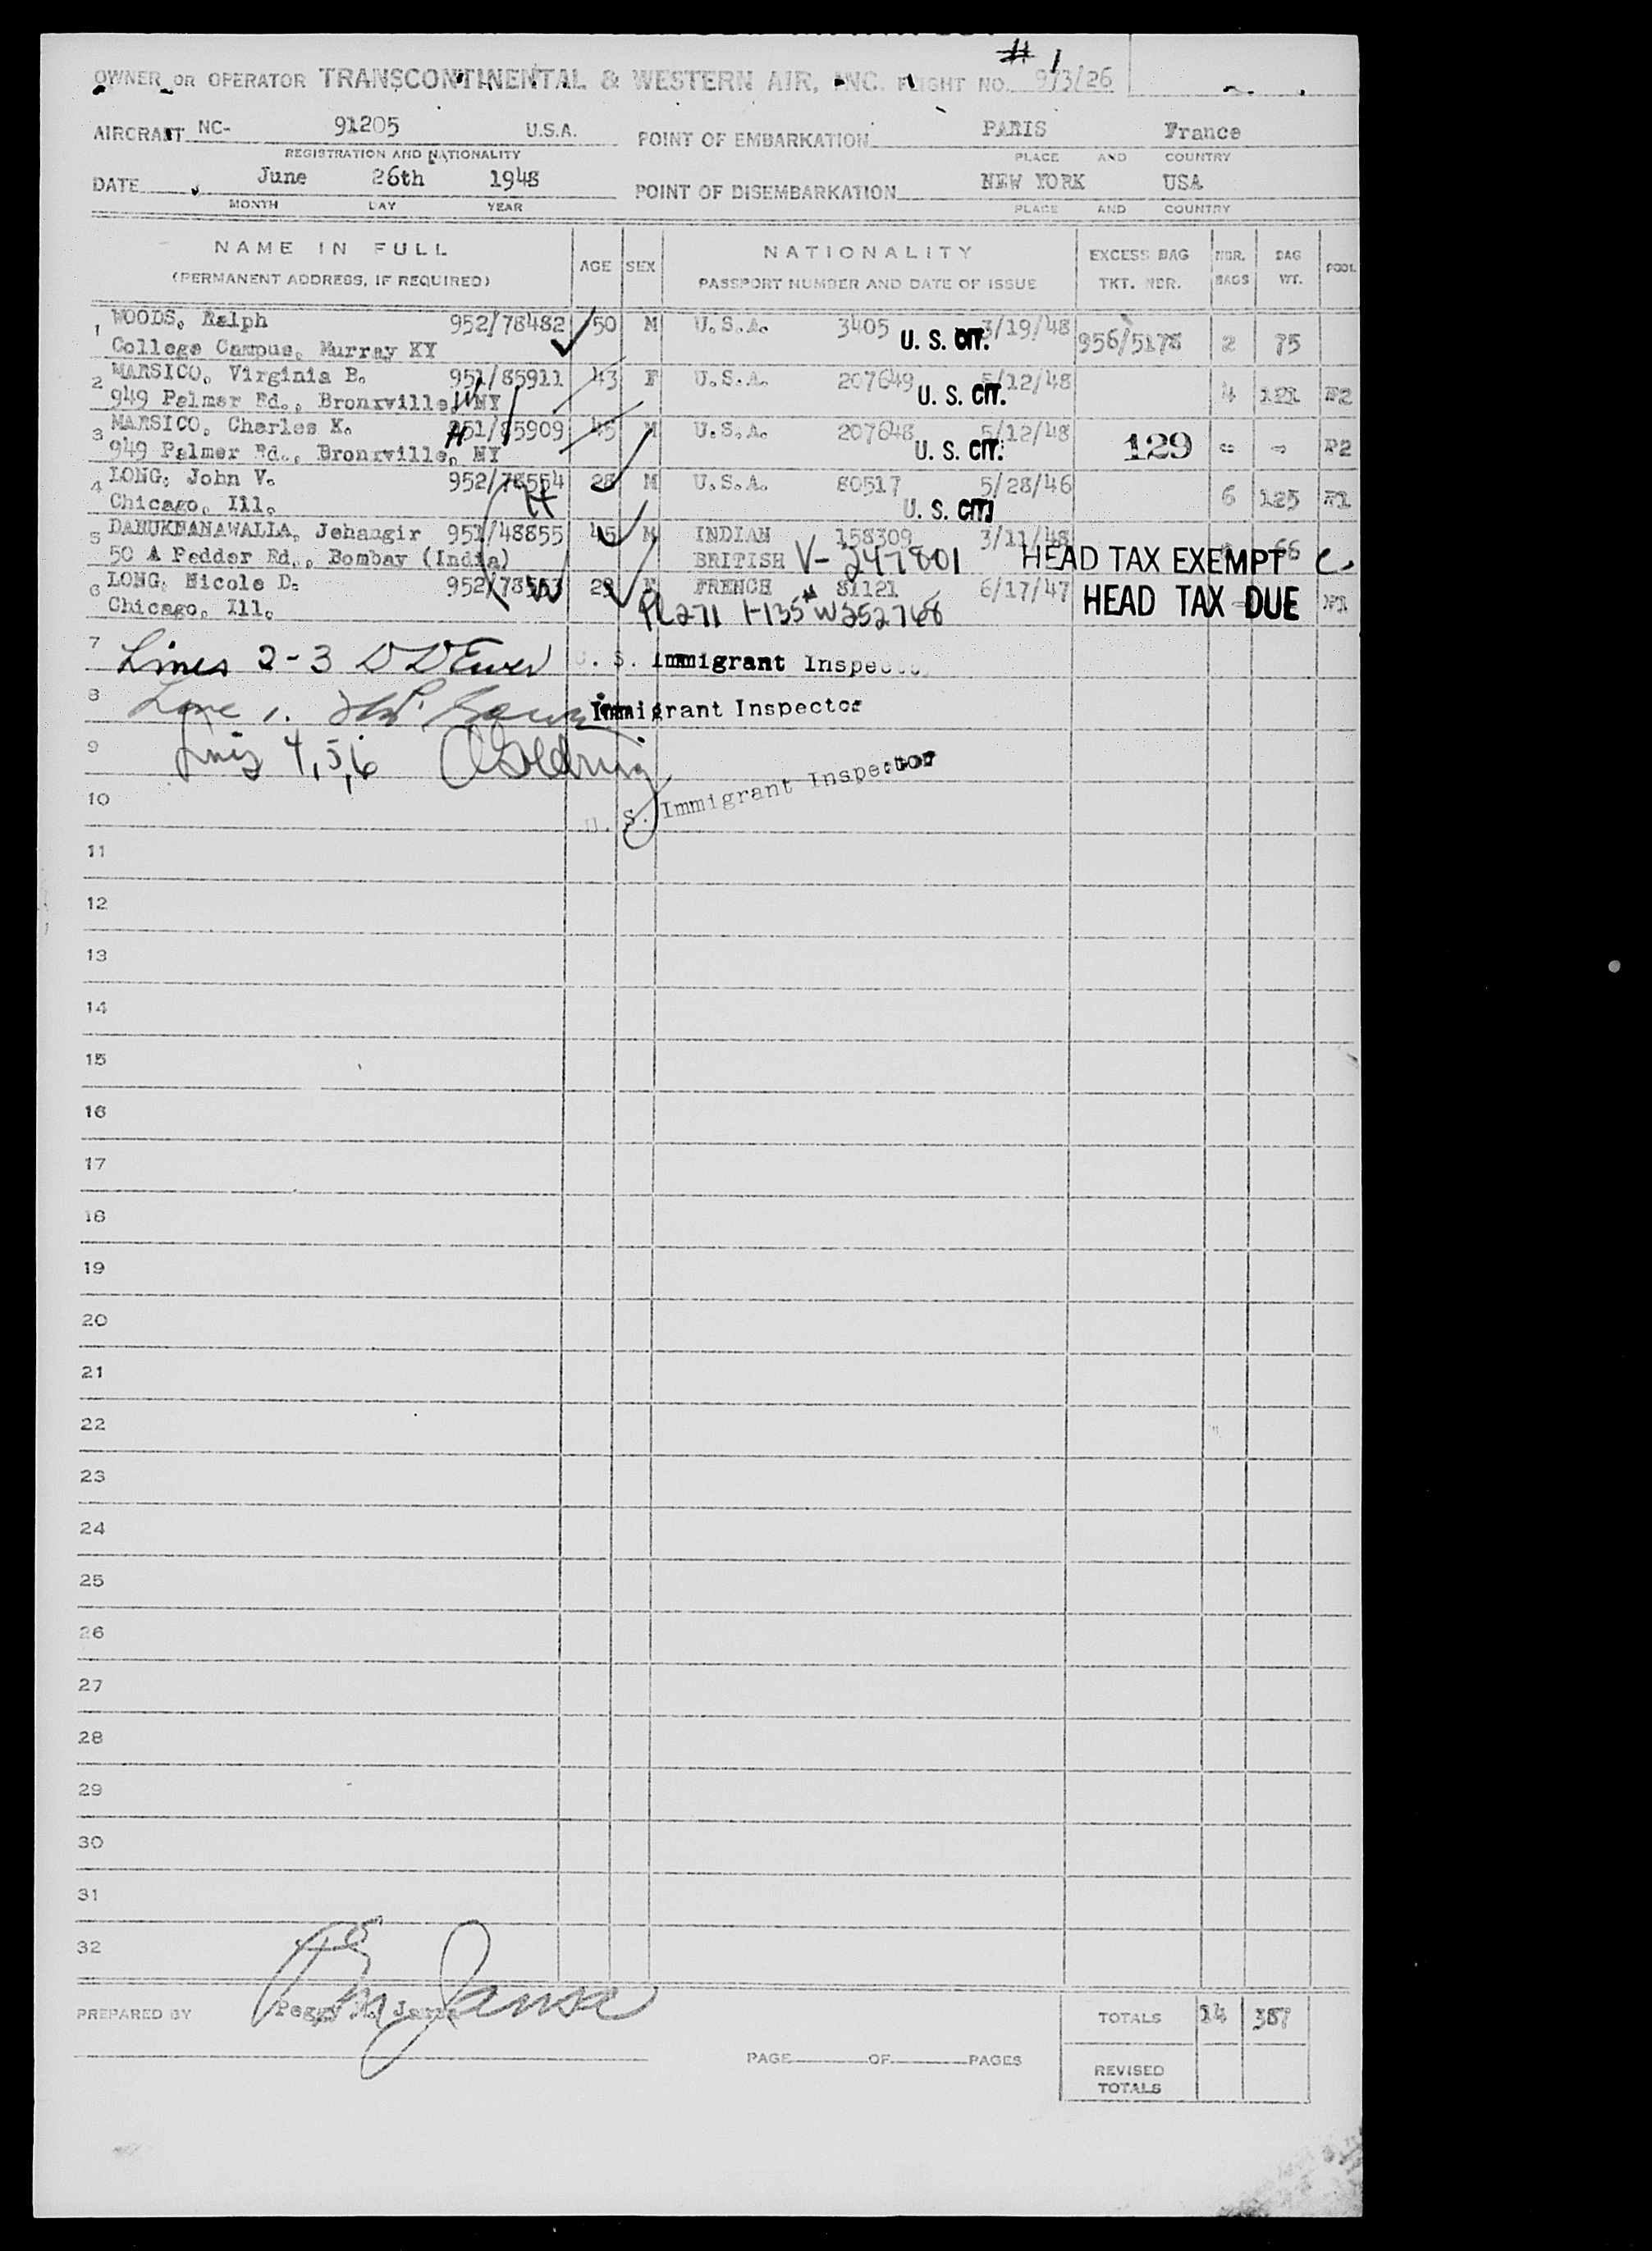 # 1
OWNER OR OPERATOR TRANSCONTINENTAL & WESTERN AIR, INC. FLIGHT NO. 973/26
AIRCRAFT NC- 91205 U.S.A. POINT OF EMBARKATION PARIS France
REGISTRATION AND NATIONALITY PLACE AND COUNTRY
DATE June 26th 1948 POINT OF DISEMBARKATION NEW YORK USA
MONTH DAY YEAR PLACE AND COUNTRY
NAME IN FULL AGE SEX NATIONALITY EXCESS BAG NBR. BAG POOL
(PERMANENT ADDRESS, IF REQUIRED) PASSPORT NUMBER AND DATE OF ISSUE TKT. NBR. BAGS WT.
1 WOODS, Ralph 952/78482 50 M U.S.A. 3405 3/19/48 956/5178 2 75
College Campus, Murray KY U. S. CIT.
2 MARSICO, Virginia B. 951/85911 43 F U.S.A. 207649 5/12/48 4 121 P2
949 Palmer Rd., Bronxville, NY U. S. CIT.
3 MARSICO, Charles K. 951/85909 45 M U.S.A. 207648 5/12/48 129 - - P2
949 Palmer Rd., Bronxville, NY U. S. CIT.
4 LONG, John V. 952/78554 28 M U.S.A. 80517 5/28/46 6 125 P1
Chicago, Ill. U. S. CIT.
5 DANUKNANAWALLA, Jehangir 951/48855 45 M INDIAN 158309 3/11/48 66
50 A Pedder Rd., Bombay (India) BRITISH V- 247801 HEAD TAX EXEMPT C.
6 LONG, Nicole D. 952/78553 28 F FRENCH 81121 6/17/47 HEAD TAX DUE P1
Chicago, Ill. PL271 I-135 W252768
7 Lines 2-3 U. S. Immigrant Inspector
8 Line 1. Immigrant Inspector
9 Lines 4,5,6
10 U. S. Immigrant Inspector
11
12
13
14
15
16
17
18
19
20
21
22
23
24
25
26
27
28
29
30
31
32
PREPARED BY Peggy M. Janse TOTALS 14 387
PAGE OF PAGES REVISED
TOTALS